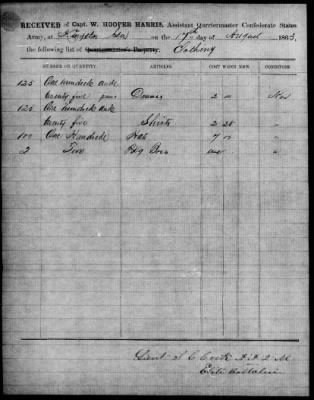 RECEIVED of CAPT. W. HOOPER HARRIS, Assistant Quartermaster Confederate States
Army, at Kingston Geo on the 17th day of August 1863,
the following list of Quartermaster's Property. Clothing
NUMBER OR QUANTITY. ARTICLES. COST WHEN NEW. CONDITION.
125 One hundred and
twenty five pair Drawers 2 00 New
125 One hundred and
twenty five Shirts 2 25 "
100 One Hundred Hats 7 00 "
2 Two Pkg Boxes "
Lieut